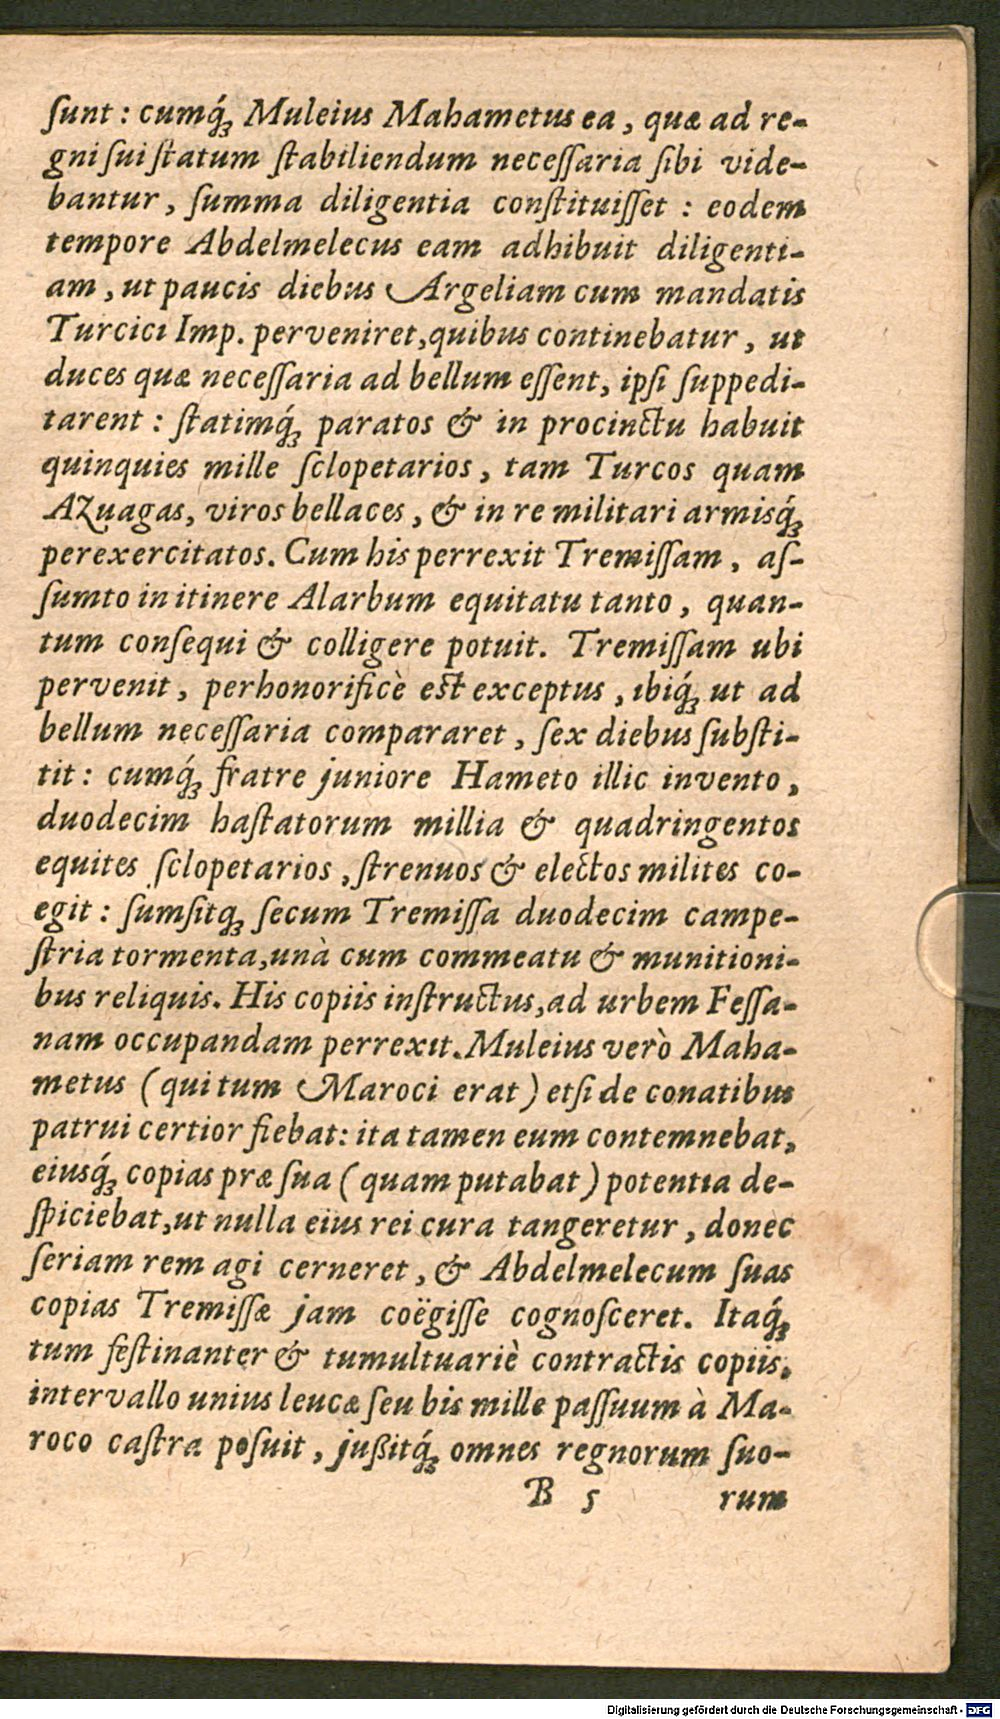 ſunt : cumq́ꝫ Muleius Mahametus ea , quæ ad re-
gni ſui ſtatum ſtabiliendum neceſſaria ſibi vide-
bantur , ſumma diligentia conſtituiſſet : eodem
tempore Abdelmelecus eam adhibuit diligenti-
am , ut paucis diebus Argeliam cum mandatis
Turcici Imp. perveniret,quibus continebatur , ut
duces quæ neceſſaria ad bellum eſſent, ipſi ſuppedi-
tarent : ſtatimq́ꝫ paratos & in procinctu habuit
quinquies mille ſclopetarios , tam Turcos quam
Azuagas, viros bellaces , & in re militari armisq́ꝫ
perexercitatos. Cum his perrexit Tremiſſam , aſ-
ſumto in itinere Alarbum equitatu tanto , quan-
tum conſequi & colligere potuit. Tremiſſam ubi
pervenit , perhonorificè eſt exceptus , ibiq́ꝫ ut ad
bellum neceſſaria compararet , ſex diebus ſubſti-
tit : cumq́ꝫ fratre juniore Hameto illic invento ,
duodecim haſtatorum millia & quadringentos
equites ſclopetarios , ſtrenuos & electos milites co-
egit : ſumſitqꝫ ſecum Tremiſſa duodecim campe-
ſtria tormenta,unà cum commeatu & munitioni-
bus reliquis. His copiis inſtructus,ad urbem Feſſa-
nam occupandam perrexit. Muleius verò Maha-
metus ( qui tum Maroci erat ) etſi de conatibus
patrui certior fiebat: ita tamen eum contemnebat,
eiusq́ꝫ copias præ ſua ( quam putabat ) potentia de-
ſpiciebat,ut nulla eius rei cura tangeretur , donec
ſeriam rem agi cerneret , & Abdelmelecum ſuas
copias Tremiſſæ jam coëgiſſe cognoſceret. Itaq́ꝫ
tum feſtinanter & tumultuariè contractis copiis,
intervallo unius leucæ ſeu bis mille paſſuum à Ma-
roco caſtra poſuit , jußitq́ꝫ omnes regnorum ſuo-
B 5 rum
Digitalisierung gefördert durch die Deutsche Forschungsgemeinschaft - DFG